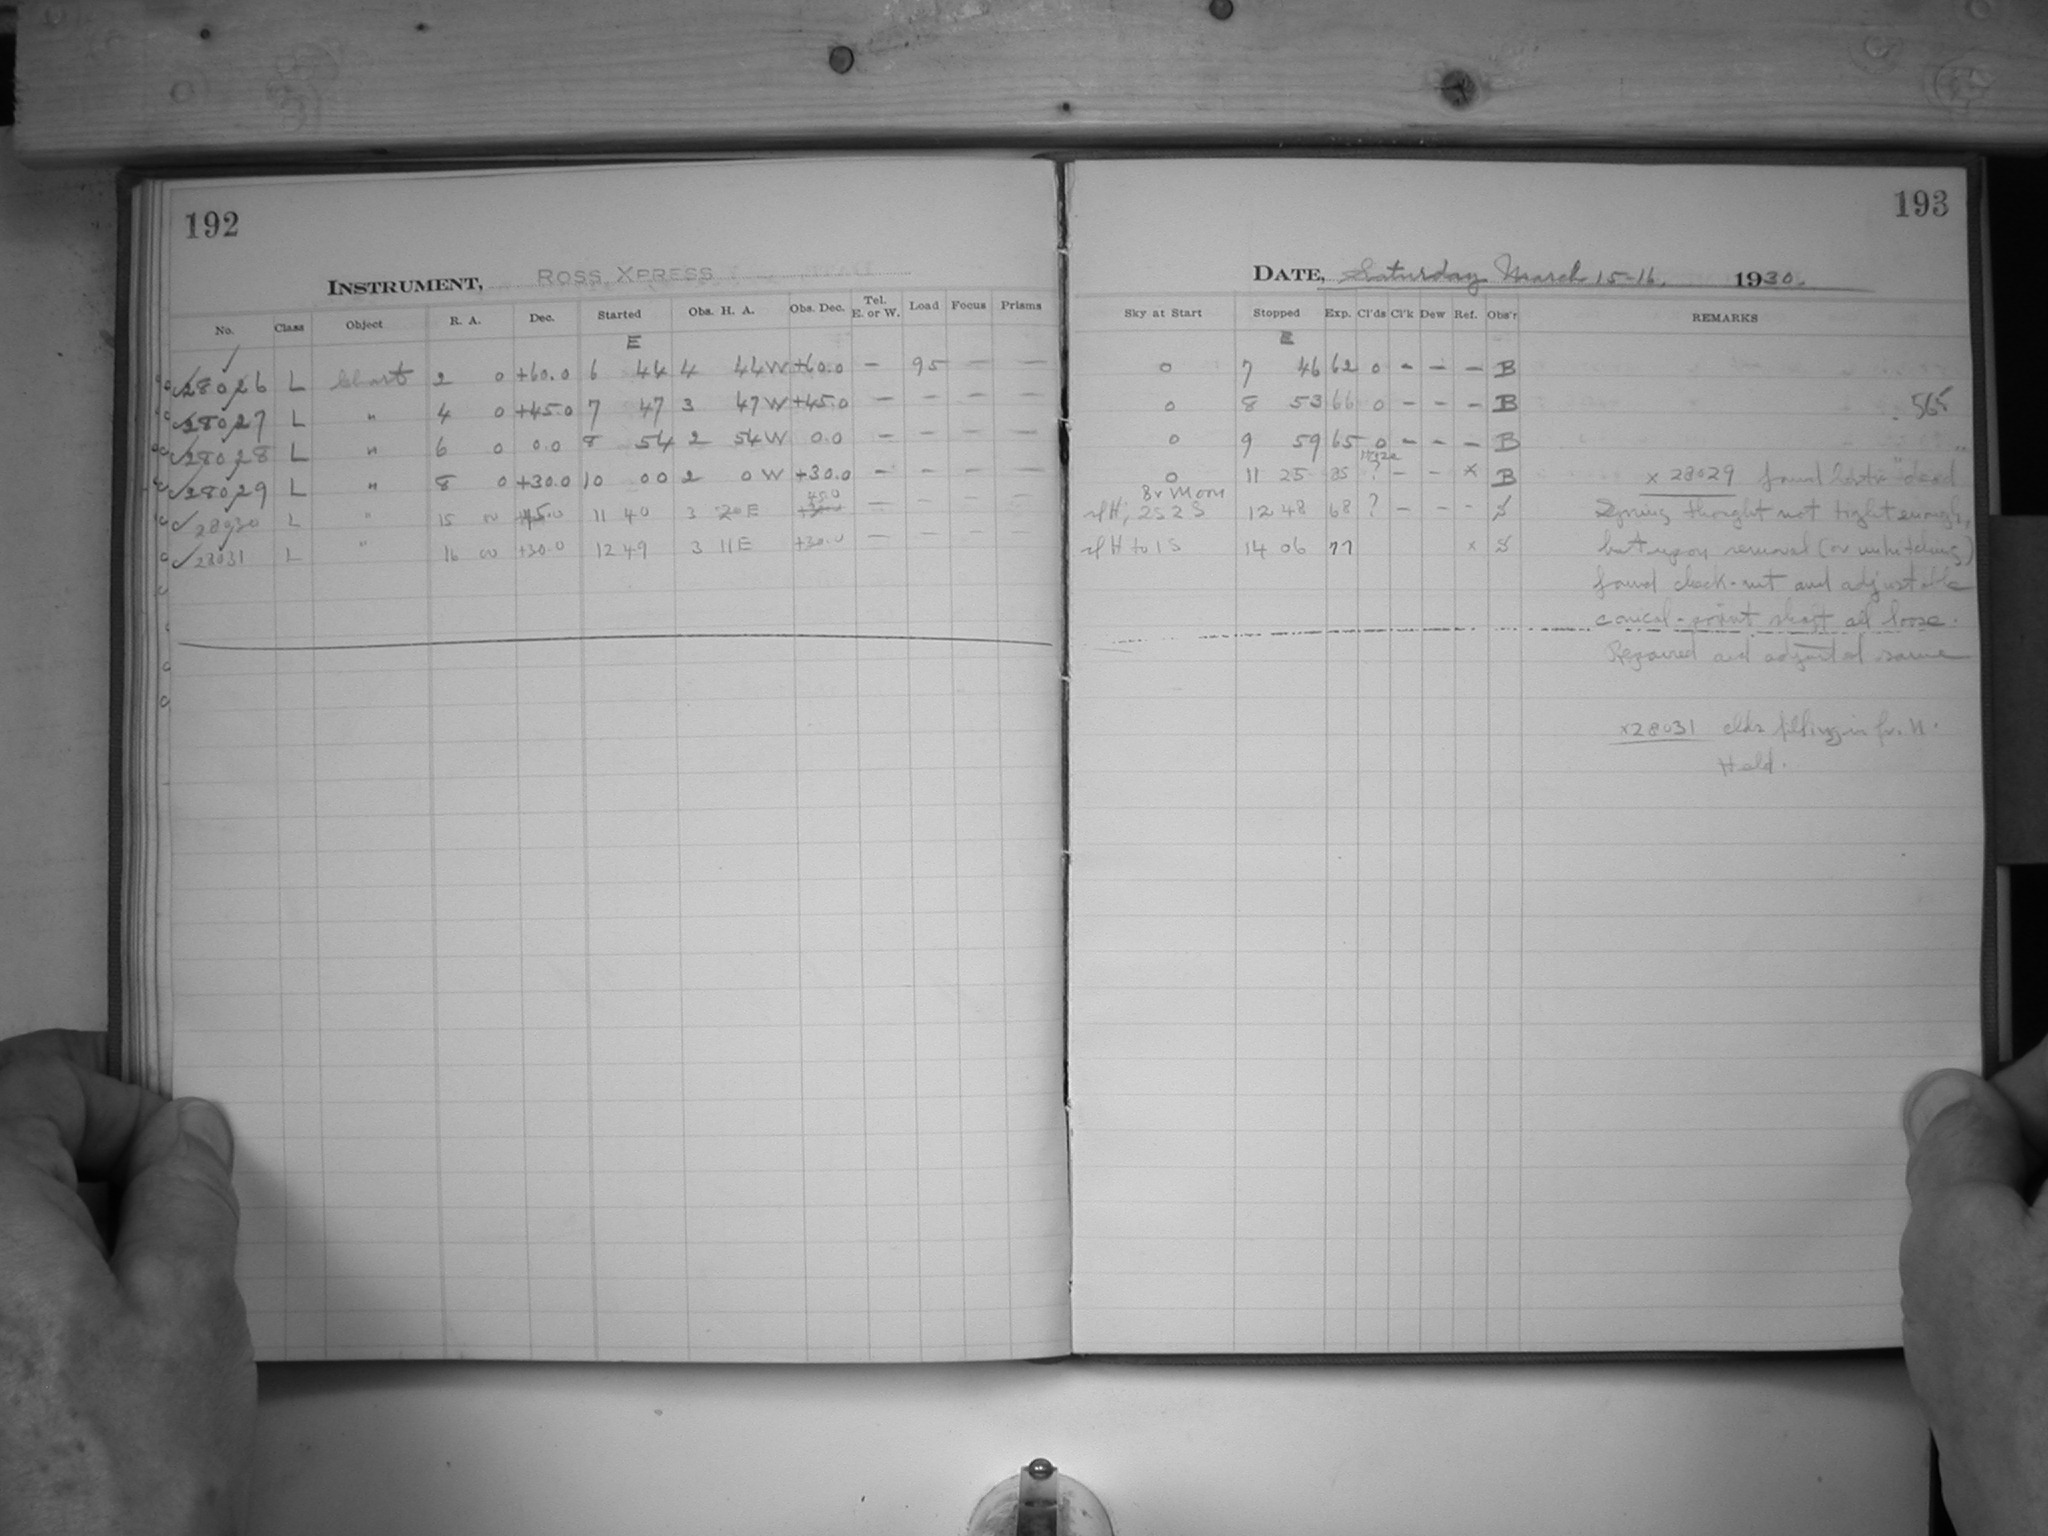 192
INSTRUMENT, ROSS XPRESS
No. Class Object R. A. Dec. Started Obs. H. A. Obs. Dec. Tel. E. or W. Load Focus Prisms
E
28026 L Chart 2 0 +60.0 6 44 4 44 W +60.0 – 95 – –
28027 L " 4 0 +45.0 7 47 3 47 W +45.0 – – – –
28028 L " 6 0 0.0 8 54 2 54 W 0.0 – – – –
28029 L " 8 0 +30.0 10 00 2 0 W +30.0 – – – –
28030 L " 15 00 +45.0 11 40 3 20 E 45.0 – – – –
28031 L " 16 00 +30.0 12 49 3 11 E +30.0 – – – –
193
DATE, Saturday March 15-16, 1930.
Sky at Start Stopped Exp. Cl'ds Cl'k Dew Ref. Obs'r REMARKS
E
0 7 46 62 0 – – – B
0 8 53 66 0 – – – B 565
0 9 59 65 0 – – – B
0 11 25 85 Haze ? – – x B x 28029 found "dead"
Br Moon
H, 2S 2S 12 48 68 ? – – - S Spring thought not tight enough,
H to 1S 14 06 77 x S but upon removal (or unhitching)
found check-nut and adjustable
conical-point shaft all loose.
Repaired and adjusted same
x28031 clds filling in fr. H.
Held.